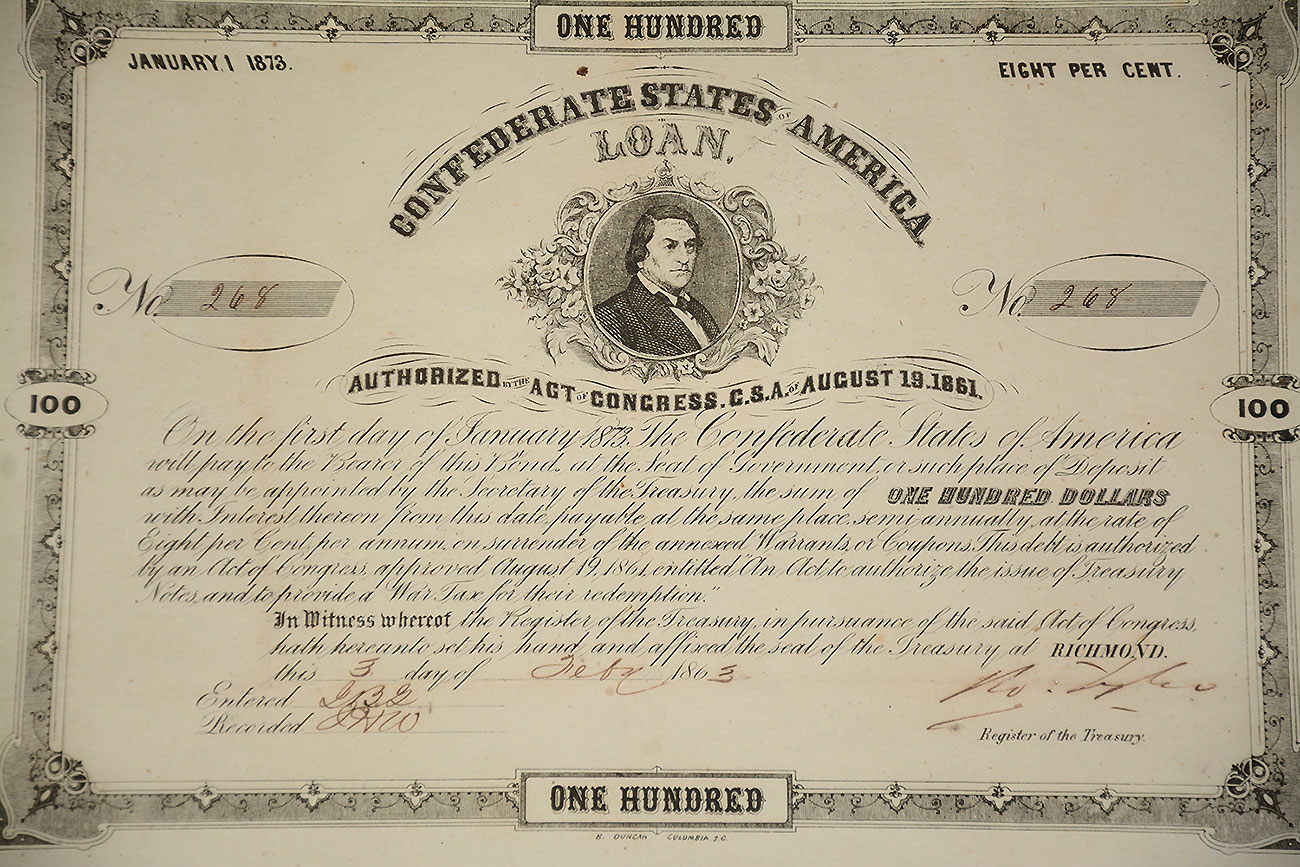 ONE HUNDRED
JANUARY, 1 1873.
EIGHT PER CENT.
CONFEDERATE STATES OF AMERICA
LOAN,
No. 268
No. 268
AUTHORIZED BY THE ACT OF CONGRESS. C.S.A. OF AUGUST 19.1861.
100
100
On the first day of January 1873, The Confederate States of America
will pay to the Bearer of this Bond, at the Seat of Government, or such place of Deposit
as may be appointed by the Secretary of the Treasury, the sum of ONE HUNDRED DOLLARS
with Interest thereon from this date, payable at the same place, semi-annually, at the rate of
Eight per Cent, per annum, on surrender of the annexed Warrants, or Coupons. This debt is authorized
by an Act of Congress, approved August, 19, 1861, entitled "An Act, to authorize the issue of Treasury
Notes, and to provide a War Tax for their redemption."
In Witness whereof, the Register of the Treasury, in pursuance of the said Act of Congress,
hath hereunto set his hand, and affixed the seal of the Treasury at RICHMOND.
this 3 day of Feby 1863
Entered
Recorded
Ro: Tyler
Register of the Treasury.
ONE HUNDRED
B. DUNCAN COLUMBIA S.C.